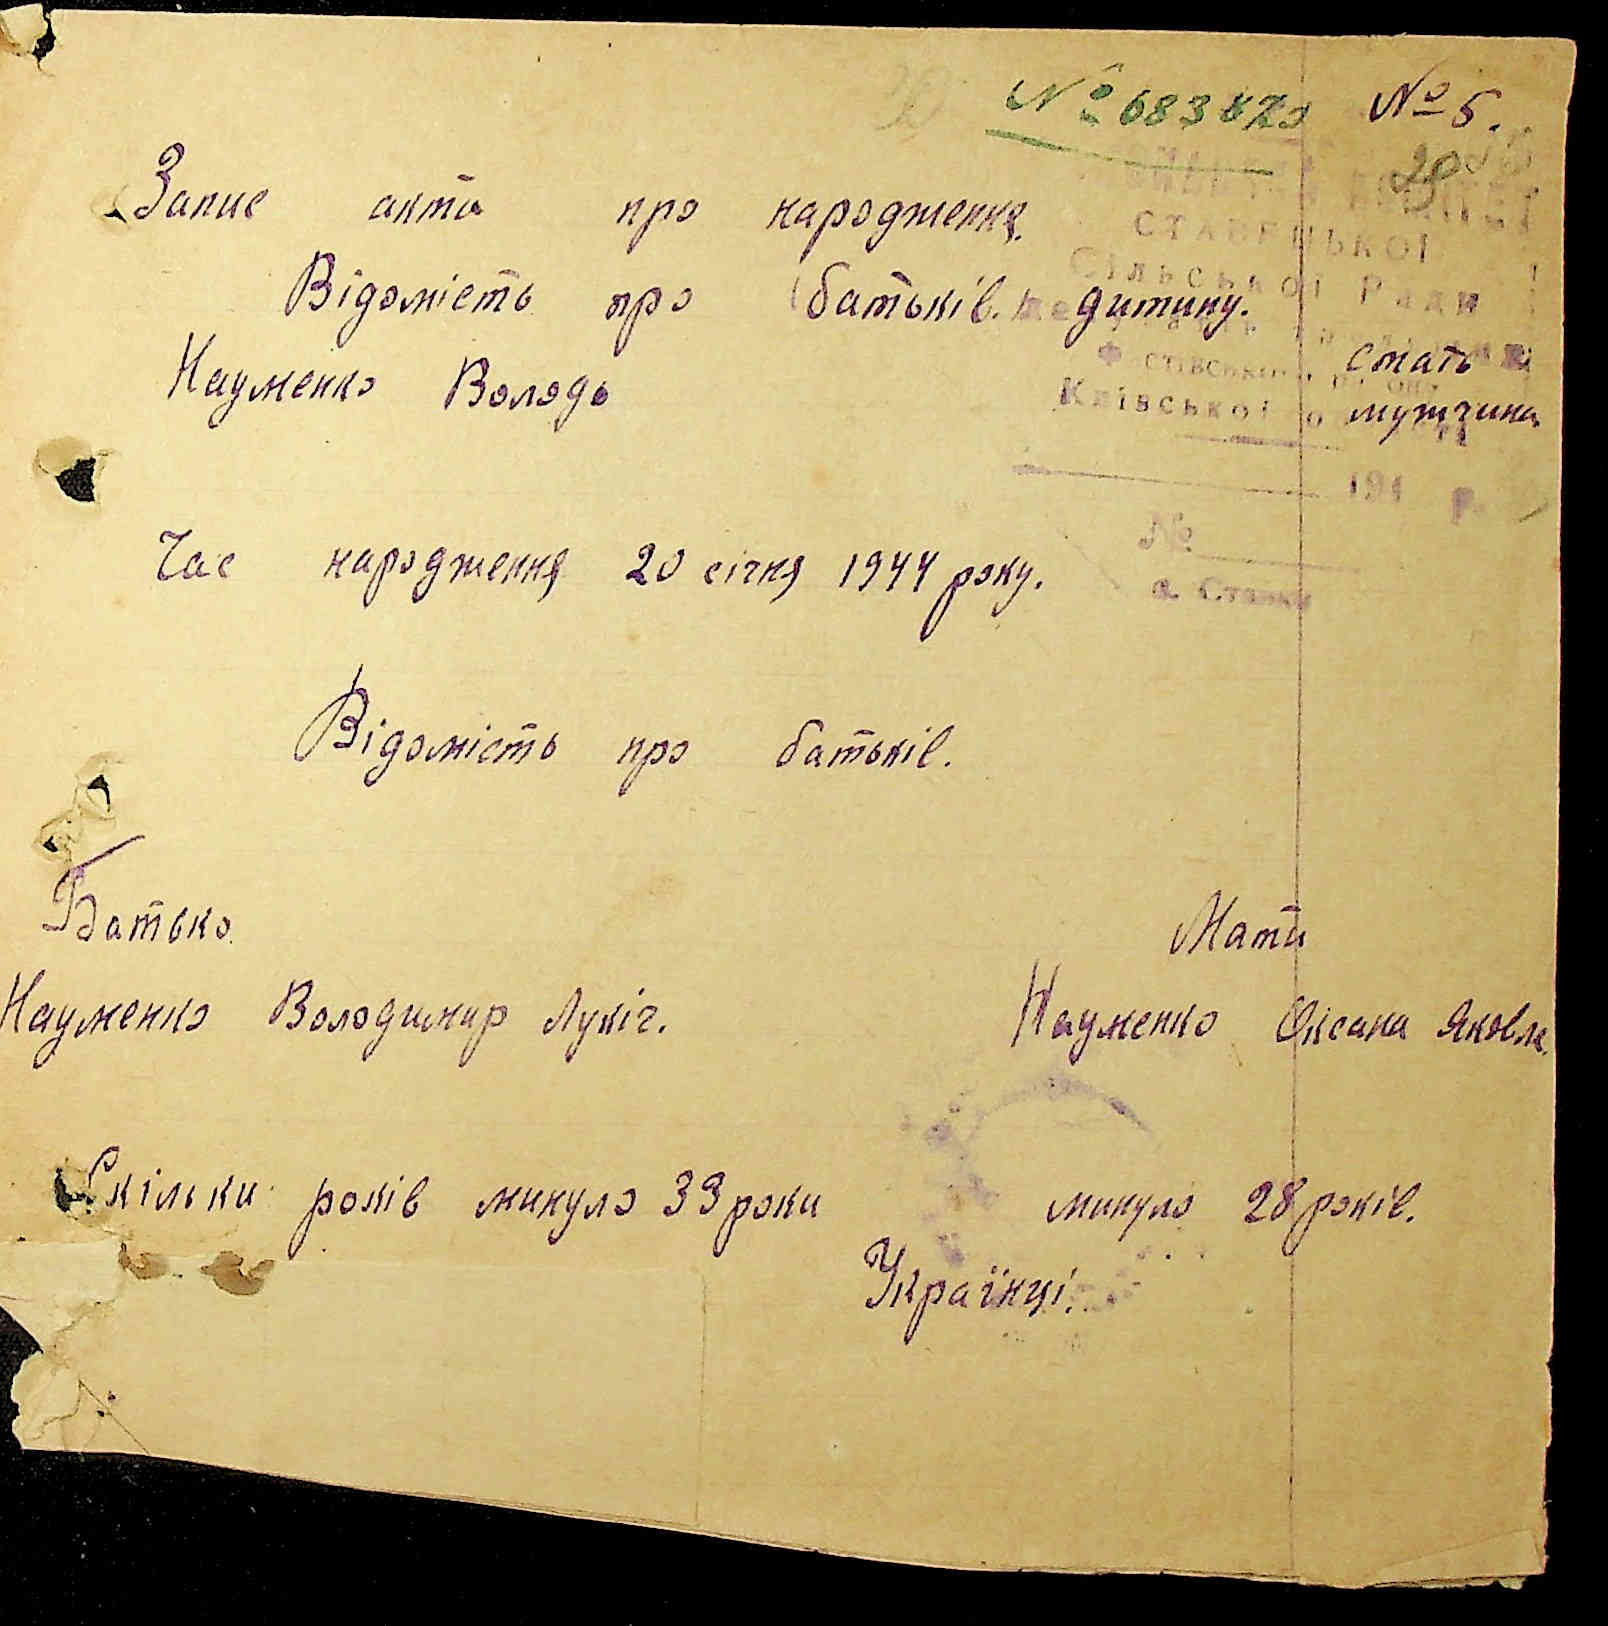 № 683 № 5.
Запис акта про народження.
СТАВЕЦЬКОЇ
Сільської Ради
Відомість про батьків. дитину.
Науменко Володь стать
Київської мужчина
194 р.
№
Час народження 20 січня 1944 року.
с. Ставки
Відомість про батьків.
Батько Мати
Науменко Володимир Лукіч. Науменко Оксана Яковл.
Скільки років минуло 33 роки минуло 28 років.
Українці.